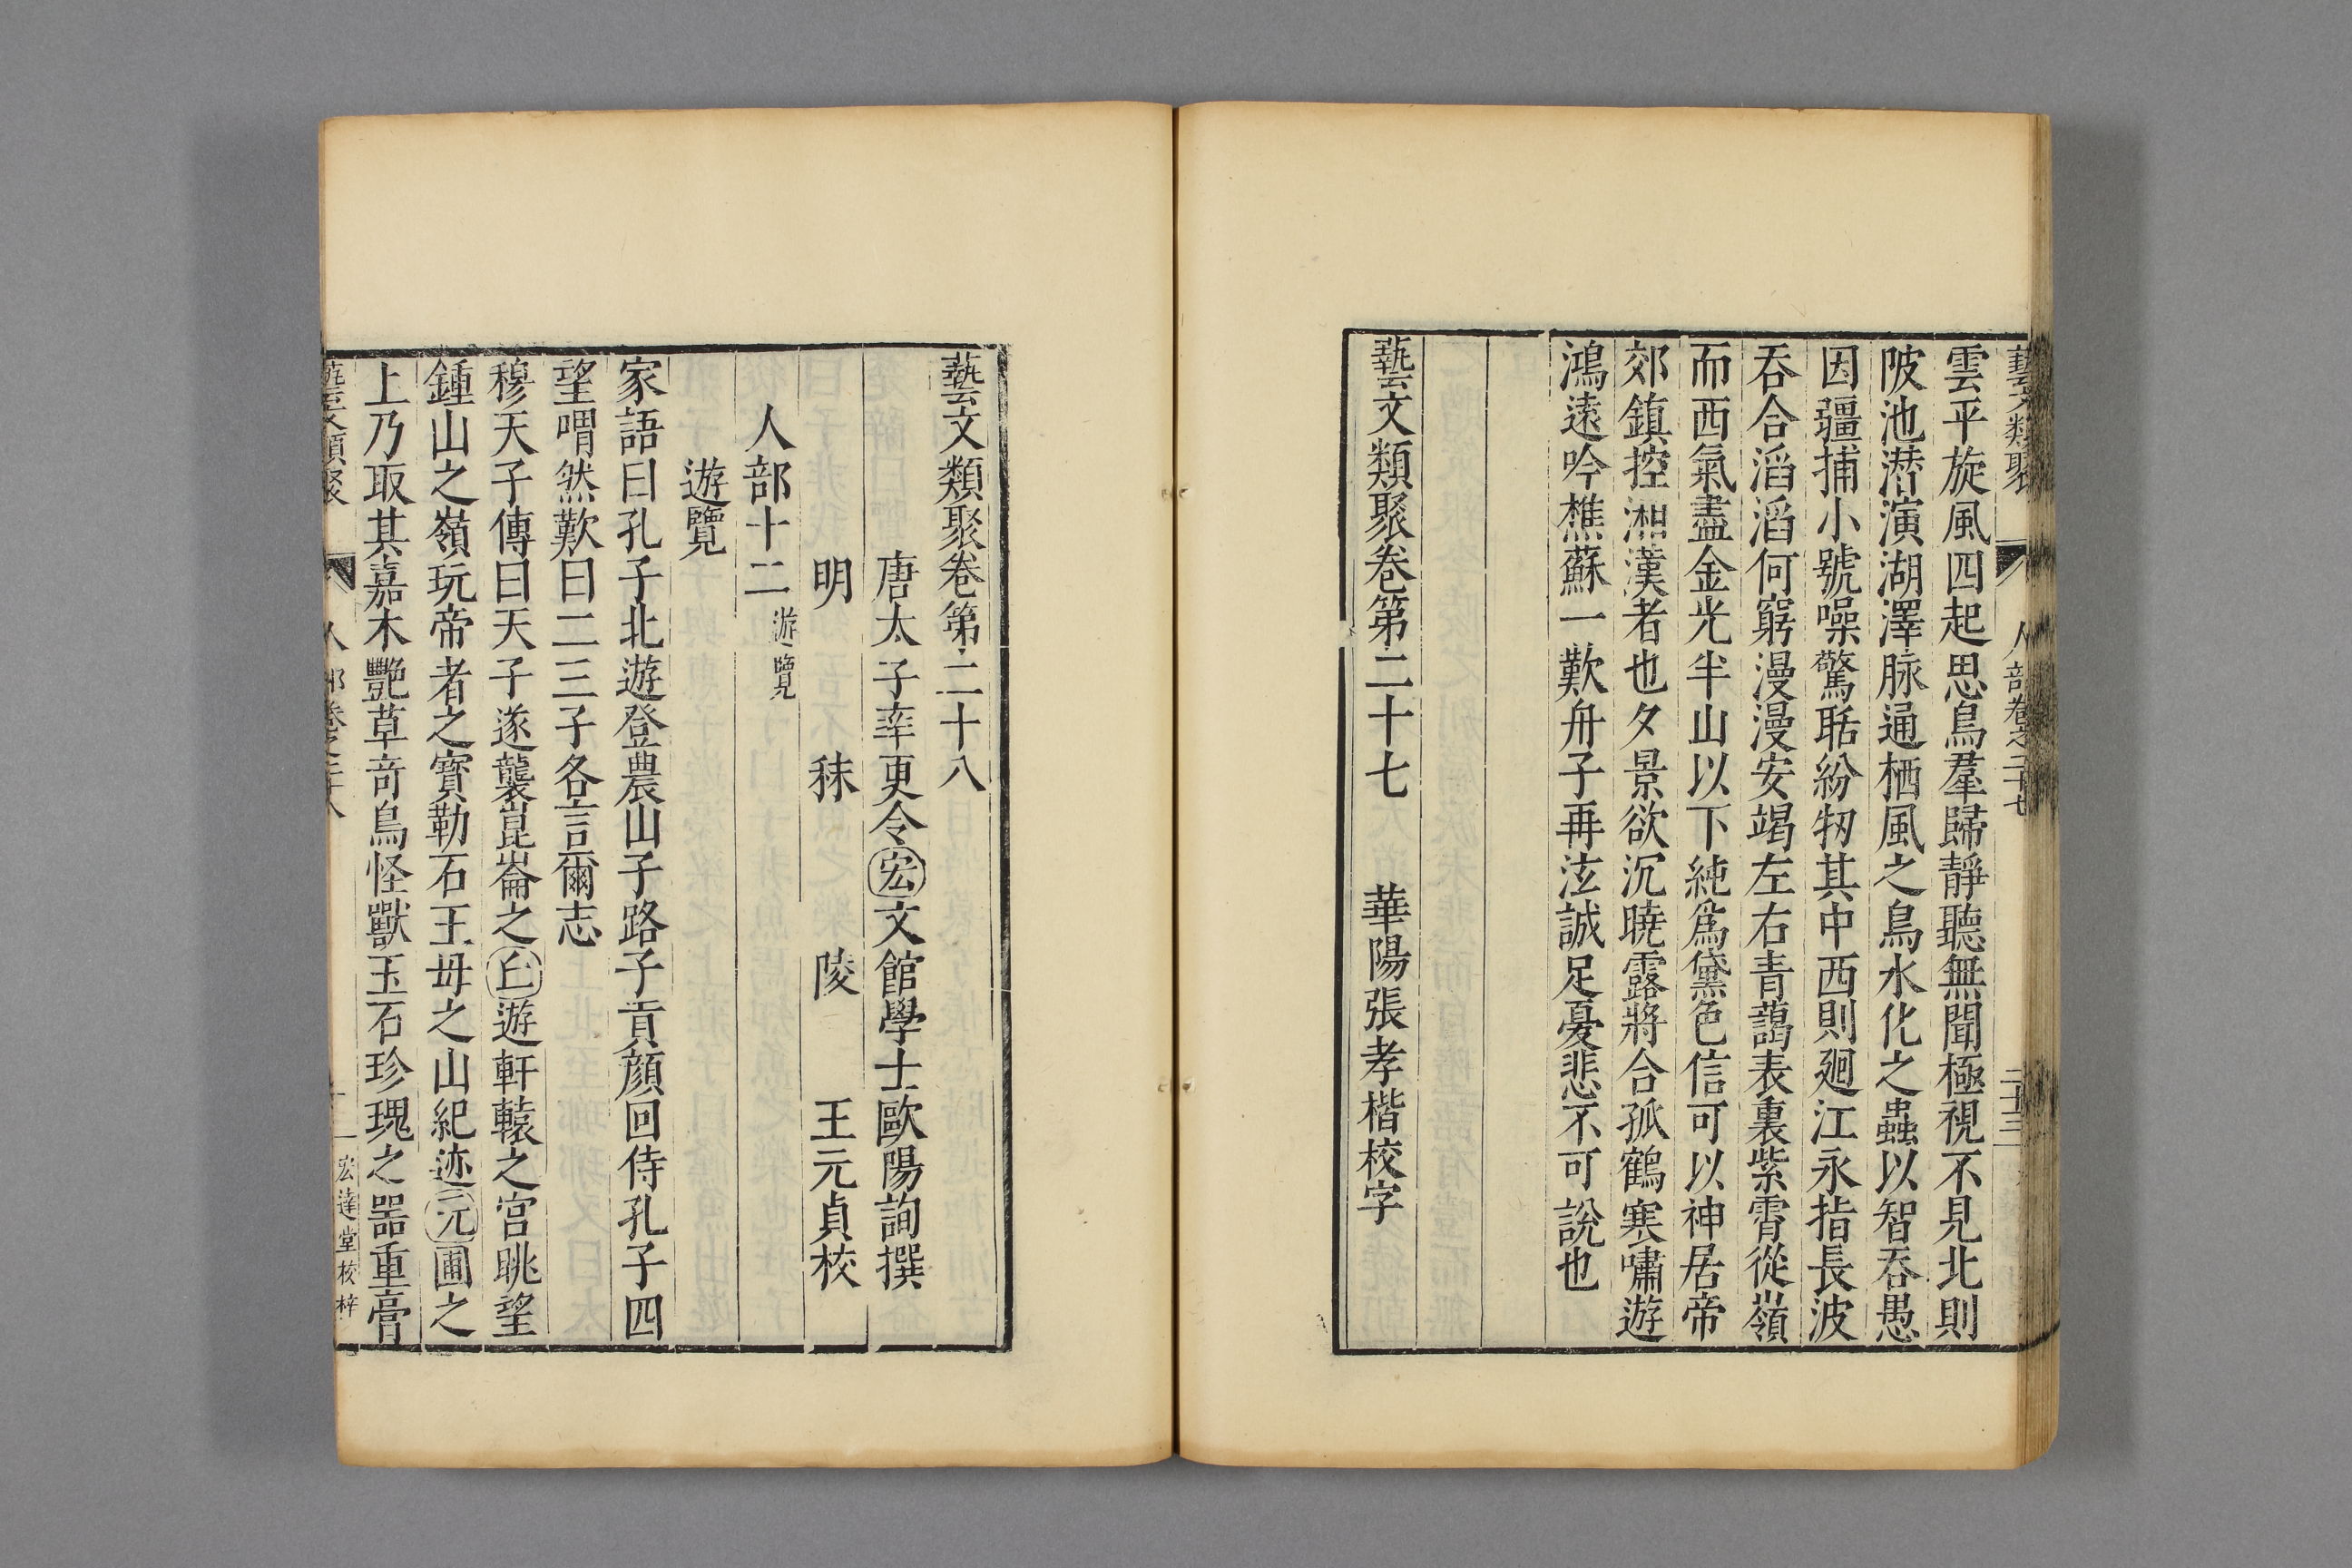 藝文類聚 人部卷之二十七 二十三
雲平旋風四起思鳥羣歸靜聽無聞極視不見北則
陂池潜演湖澤脉通栖風之鳥水化之蟲以智吞愚
因疆捕小號噪驚聒紛牣其中西則廻江永指長波
吞合滔滔何窮漫漫安竭左右青藹表裏紫霄從嶺
而西氣盡金光半山以下純爲黛色信可以神居帝
郊鎮控湘漢者也夕景欲沉曉露將合孤鶴寒嘯遊
鴻遠吟樵蘇一歎舟子再泫誠足憂悲不可說也
藝文類聚卷第二十七 華陽張孝楷校字
藝文類聚卷第二十八
唐太子率更令宏文館學士歐陽詢撰
明 秣 陵 王元貞校
人部十二 游覽
遊覽
家語曰孔子北遊登農山子路子貢顏回侍孔子四
望喟然歎曰二三子各言爾志
穆天子傳曰天子遂襲崑崙之𠀉遊軒轅之宮眺望
鍾山之嶺玩帝者之寶勒石王母之山紀迹元圃之
上乃取其嘉木艷草竒鳥怪獸玉石珍瑰之器重膏
藝文類聚 人部卷之二十八 一 宏達堂校梓